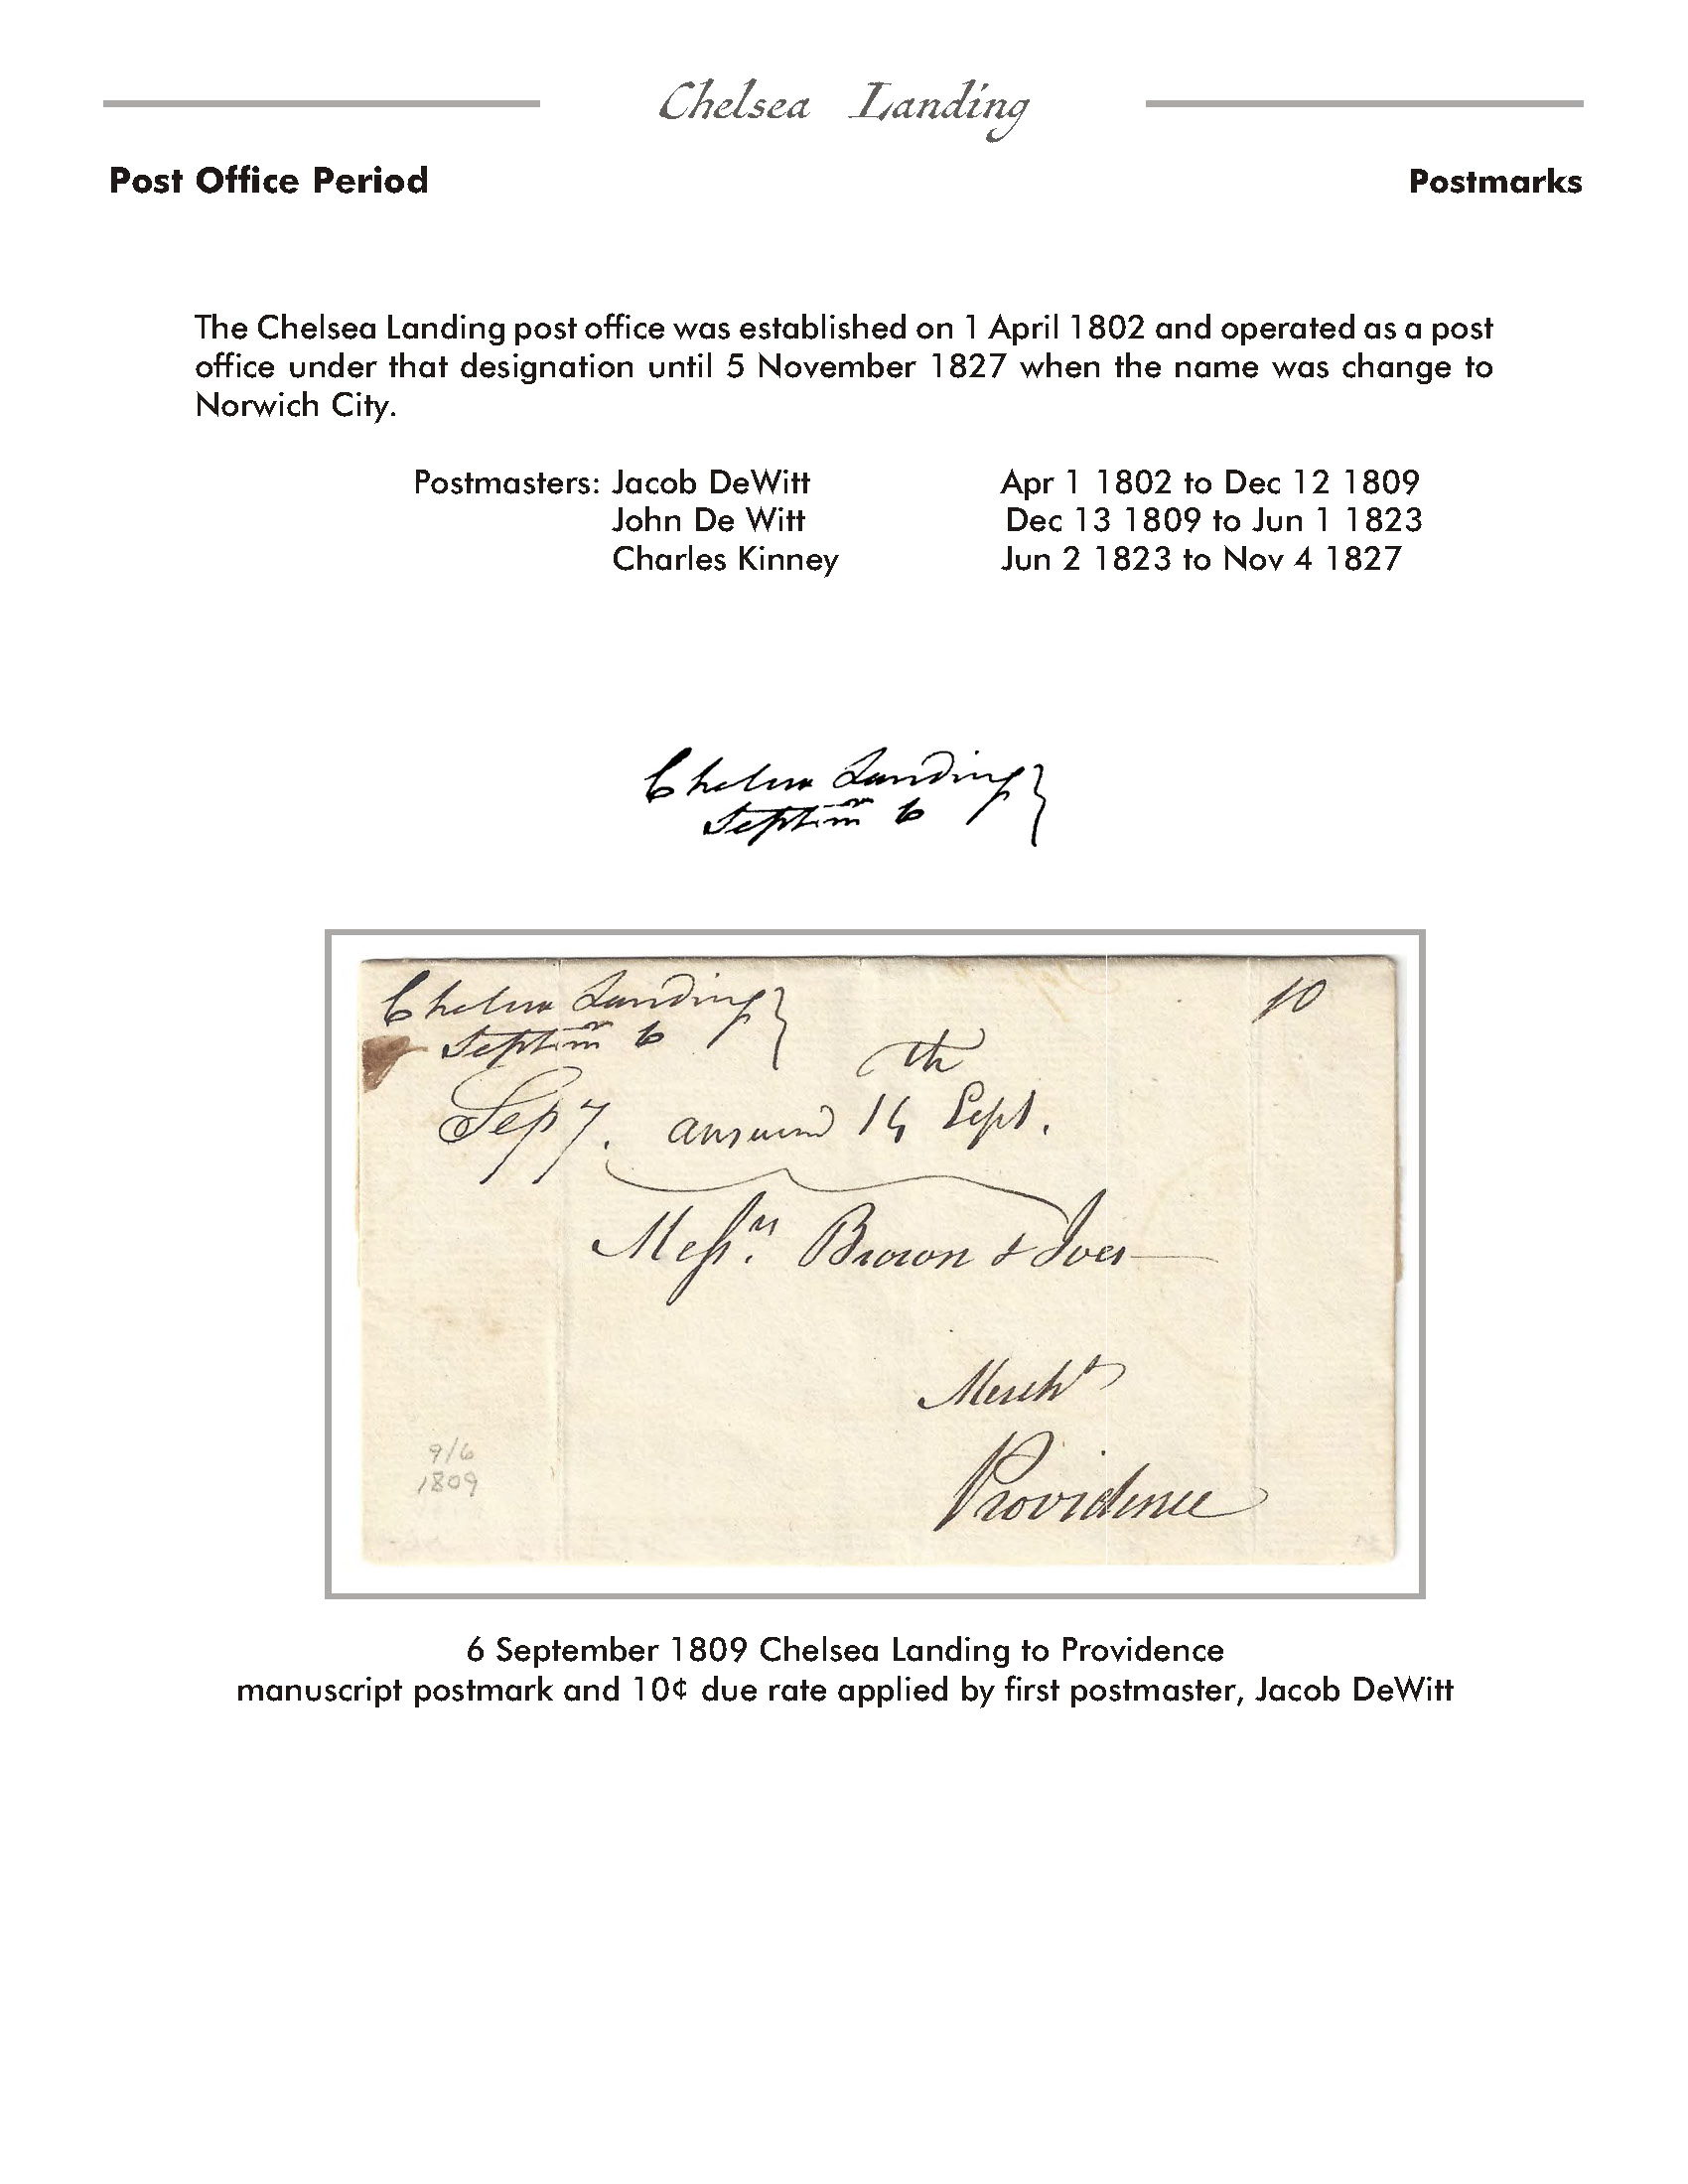 Chelsea Landing
Post Office Period
Postmarks
The Chelsea Landing post office was established on 1 April 1802 and operated as a post
office under that designation until 5 November 1827 when the name was change to
Norwich City.
Postmasters: Jacob DeWitt Apr 1 1802 to Dec 12 1809
John De Witt Dec 13 1809 to Jun 1 1823
Charles Kinney Jun 2 1823 to Nov 4 1827
Chelsea Landing }
6
Chelsea Landing }
6
10
th
Sep 7. answered 14 Sept.
Messrs. Brown & Ives
Mercht
Providence
9/6
1809
6 September 1809 Chelsea Landing to Providence
manuscript postmark and 10¢ due rate applied by first postmaster, Jacob DeWitt